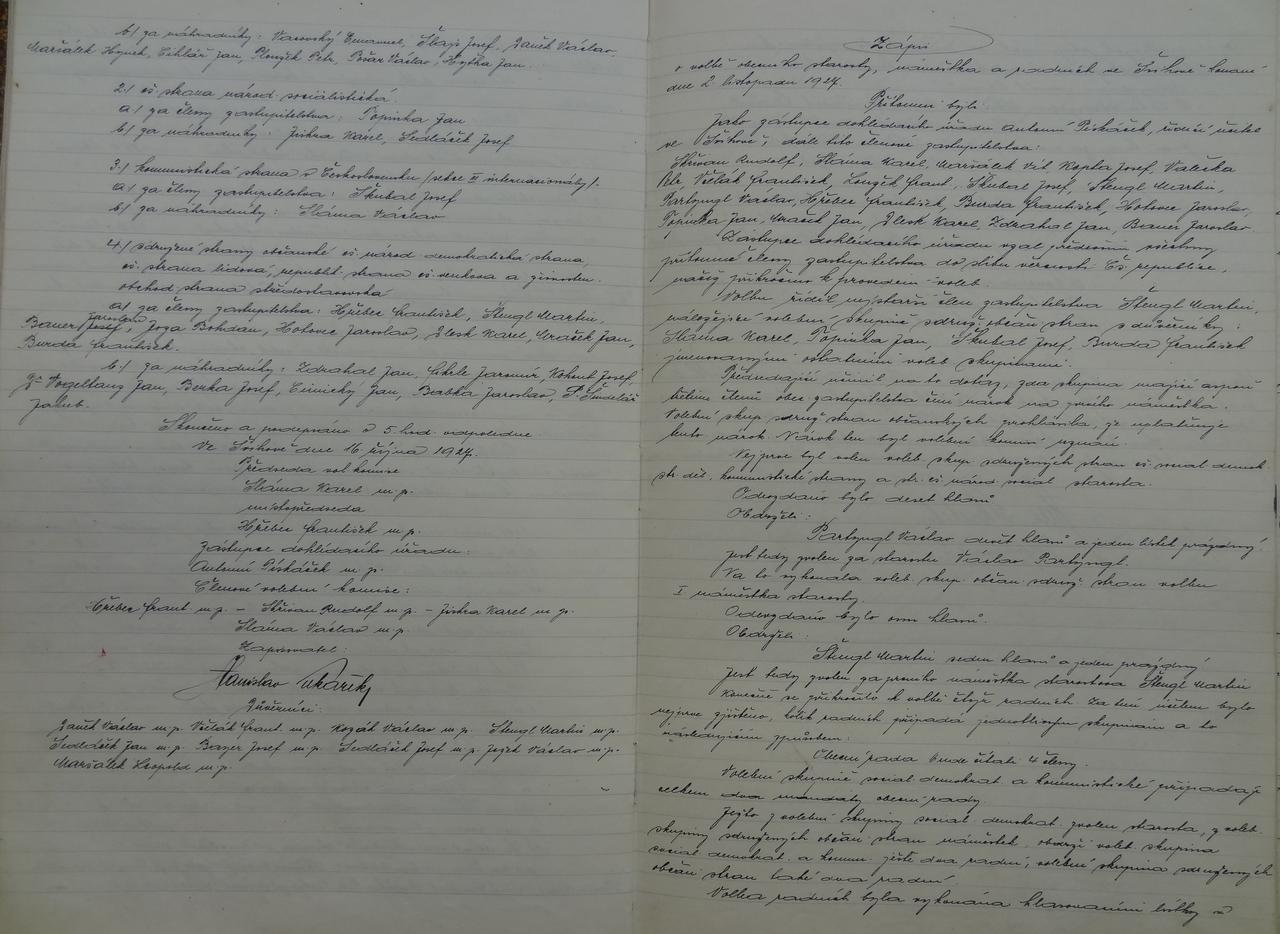 b/ za náhradníky: Vasovský Emanuel, Šlajs Josef, Janek Václav,
Maršálek Hynek, Cihlář Jan, Plouček Petr, Pošar Václav, Hytka Jan.
2./ čs strana národ. socialistická.
a./ za členy zastupitelstva: Topinka Jan
b./ za náhradníky: Jiskra Karel, Sedláček Josef
3./ komunistická strana v Československu /sekce III internacionály/.
a./ za členy zastupitelstva: Škubal Josef
b./ za náhradníky: Sláma Václav
4./ sdružené strany občanské čs. národ demokratická strana,
čs. strana lidová, republ. strana čs. venkova a živnosten.
obchod strana středostavovská
a./ za členy zastupitelstva: Hřebec František, Štengl Martin,
Bauer Jaroslav, Joga Bohdan, Hotovec Jaroslav, Zlesk Karel, Mraček Jan,
Burda František.
b./ za náhradníky: Zdrahal Jan, Cikrle Jaromír, Kohout Josef,
Vogeltanz Jan, Berka Josef, Jan, Babka Jaroslav, P. Šindelář
Jakub.
Skončeno a podepsáno v 5 hod. odpoledne.
Ve dne 16. října 1927.
Předseda vol komise
Sláma Karel m. p.
místopředseda
Hřebec František m. p.
Zástupce dohlédacího úřadu:
Antonín Piskáček m. p.
Členové volební komise:
Hřebec Frant m. p. – Skřivan Rudolf m. p. – Jiskra Karel m. p.
Sláma Václav m. p.
Zapisovatel:
Stanislav
Důvěrníci:
Janek Václav m. p. Višták Frant. m. p. Kozák Václav m. p. Štengl Martin m. p.
Sedláček Jan m. p. Bayer Josef m. p. Sedláček Josef m. p. Ježek Václav m. p.
Maršálek Leopold m. p.
Zápis
o volbě obecního starosty, náměstka a radních ve konané
dne 2. listopadu 1927.
Přítomni byli:
Jako zástupce dohlédacího úřadu Antonín Piskáček, řídící učitel
ve, dále tito členové zastupitelstva:
Skřivan Rudolf, Sláma Karel, Maršálek Vít, Kopta Josef, Valečka
Petr, Višták František, Frant., Škubal Josef, Štengl Martin,
Partyngl Václav, Hřebec František, Burda František, Hotovec Jaroslav,
Topinka Jan, Mraček Jan, Zlesk Karel, Zdrahal Jan, Bauer Jaroslav.
Zástupce dohlédacího úřadu vzal především všechny
přítomné členy zastupitelstva do slibu věrnosti Čs. republice,
načež přikročeno k provedení voleb.
Volbu řídil nejstarší člen zastupitelstva Štengl Martin,
náležející volební skupině sdruž. občan stran s důvěrníky:
Sláma Karel, Topinka Jan, Škubal Josef, Burda František
jmenovanými ostatními voleb skupinami.
Předsedající učinil na to dotaz, zda skupina mající aspoň
třetinu členů obec zastupitelstva činí nárok na prvého náměstka.
Volební skup. sdruž stran občanských prohlásila, že uplatňuje
tento nárok. Nárok ten byl volební komisí uznán.
Nejprve byl volen voleb. skup. sdružených stran čs. social demok
str. děl., komunistické strany a str. čs. národ. social starosta.
Odevzdáno bylo deset hlasů
Obdrželi:
Partyngl Václav devět hlasů a jeden lístek prázdný.
Jest tedy zvolen za starostu Václav Partyngl.
Na to vykonala voleb. skup. občan sdruž. stran volbu
I náměstka starosty.
Odevzdáno bylo osm hlasů.
Obdrželi:
Štengl Martin sedm hlasů a jeden prázdný.
Jest tedy zvolen za prvního náměstka starostova Štengl Martin
Konečně se přikročilo k volbě čtyř radních. Za tím účelem bylo
nejprve zjištěno, kolik radních připadá jednotlivým skupinám a to
následujícím způsobem:
Obecní rada bude čítati 4 členy.
Volební skupině social. demokrat. a komunistické připadají
celkem dva mandáty obecní rady.
Ježto z volební skupiny social. demokrat. zvolen starosta, z voleb.
skupiny sdružených občan. stran náměstek, obdrží volet. skupina
social demokrat. a komun. ještě dva radní, volební skupina sdružených
občan stran také dva radní.
Volba radních byla vykonána hlasovacími lístky v